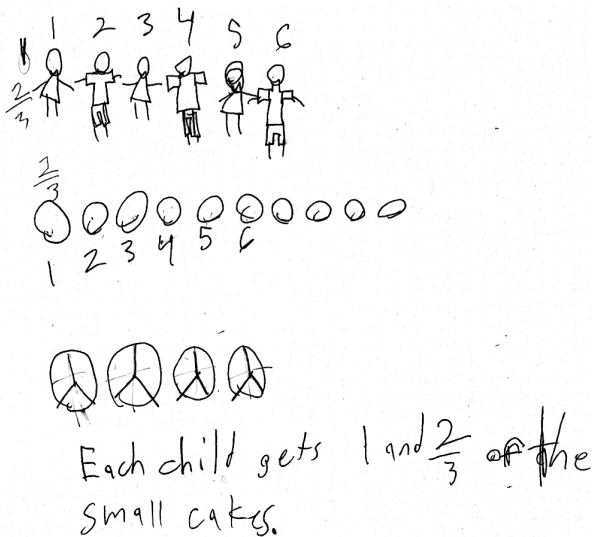 1 2 3 4 5 6
2/3
2/3
1 2 3 4 5 6
Each child gets 1 and 2/3 of the
small cakes.